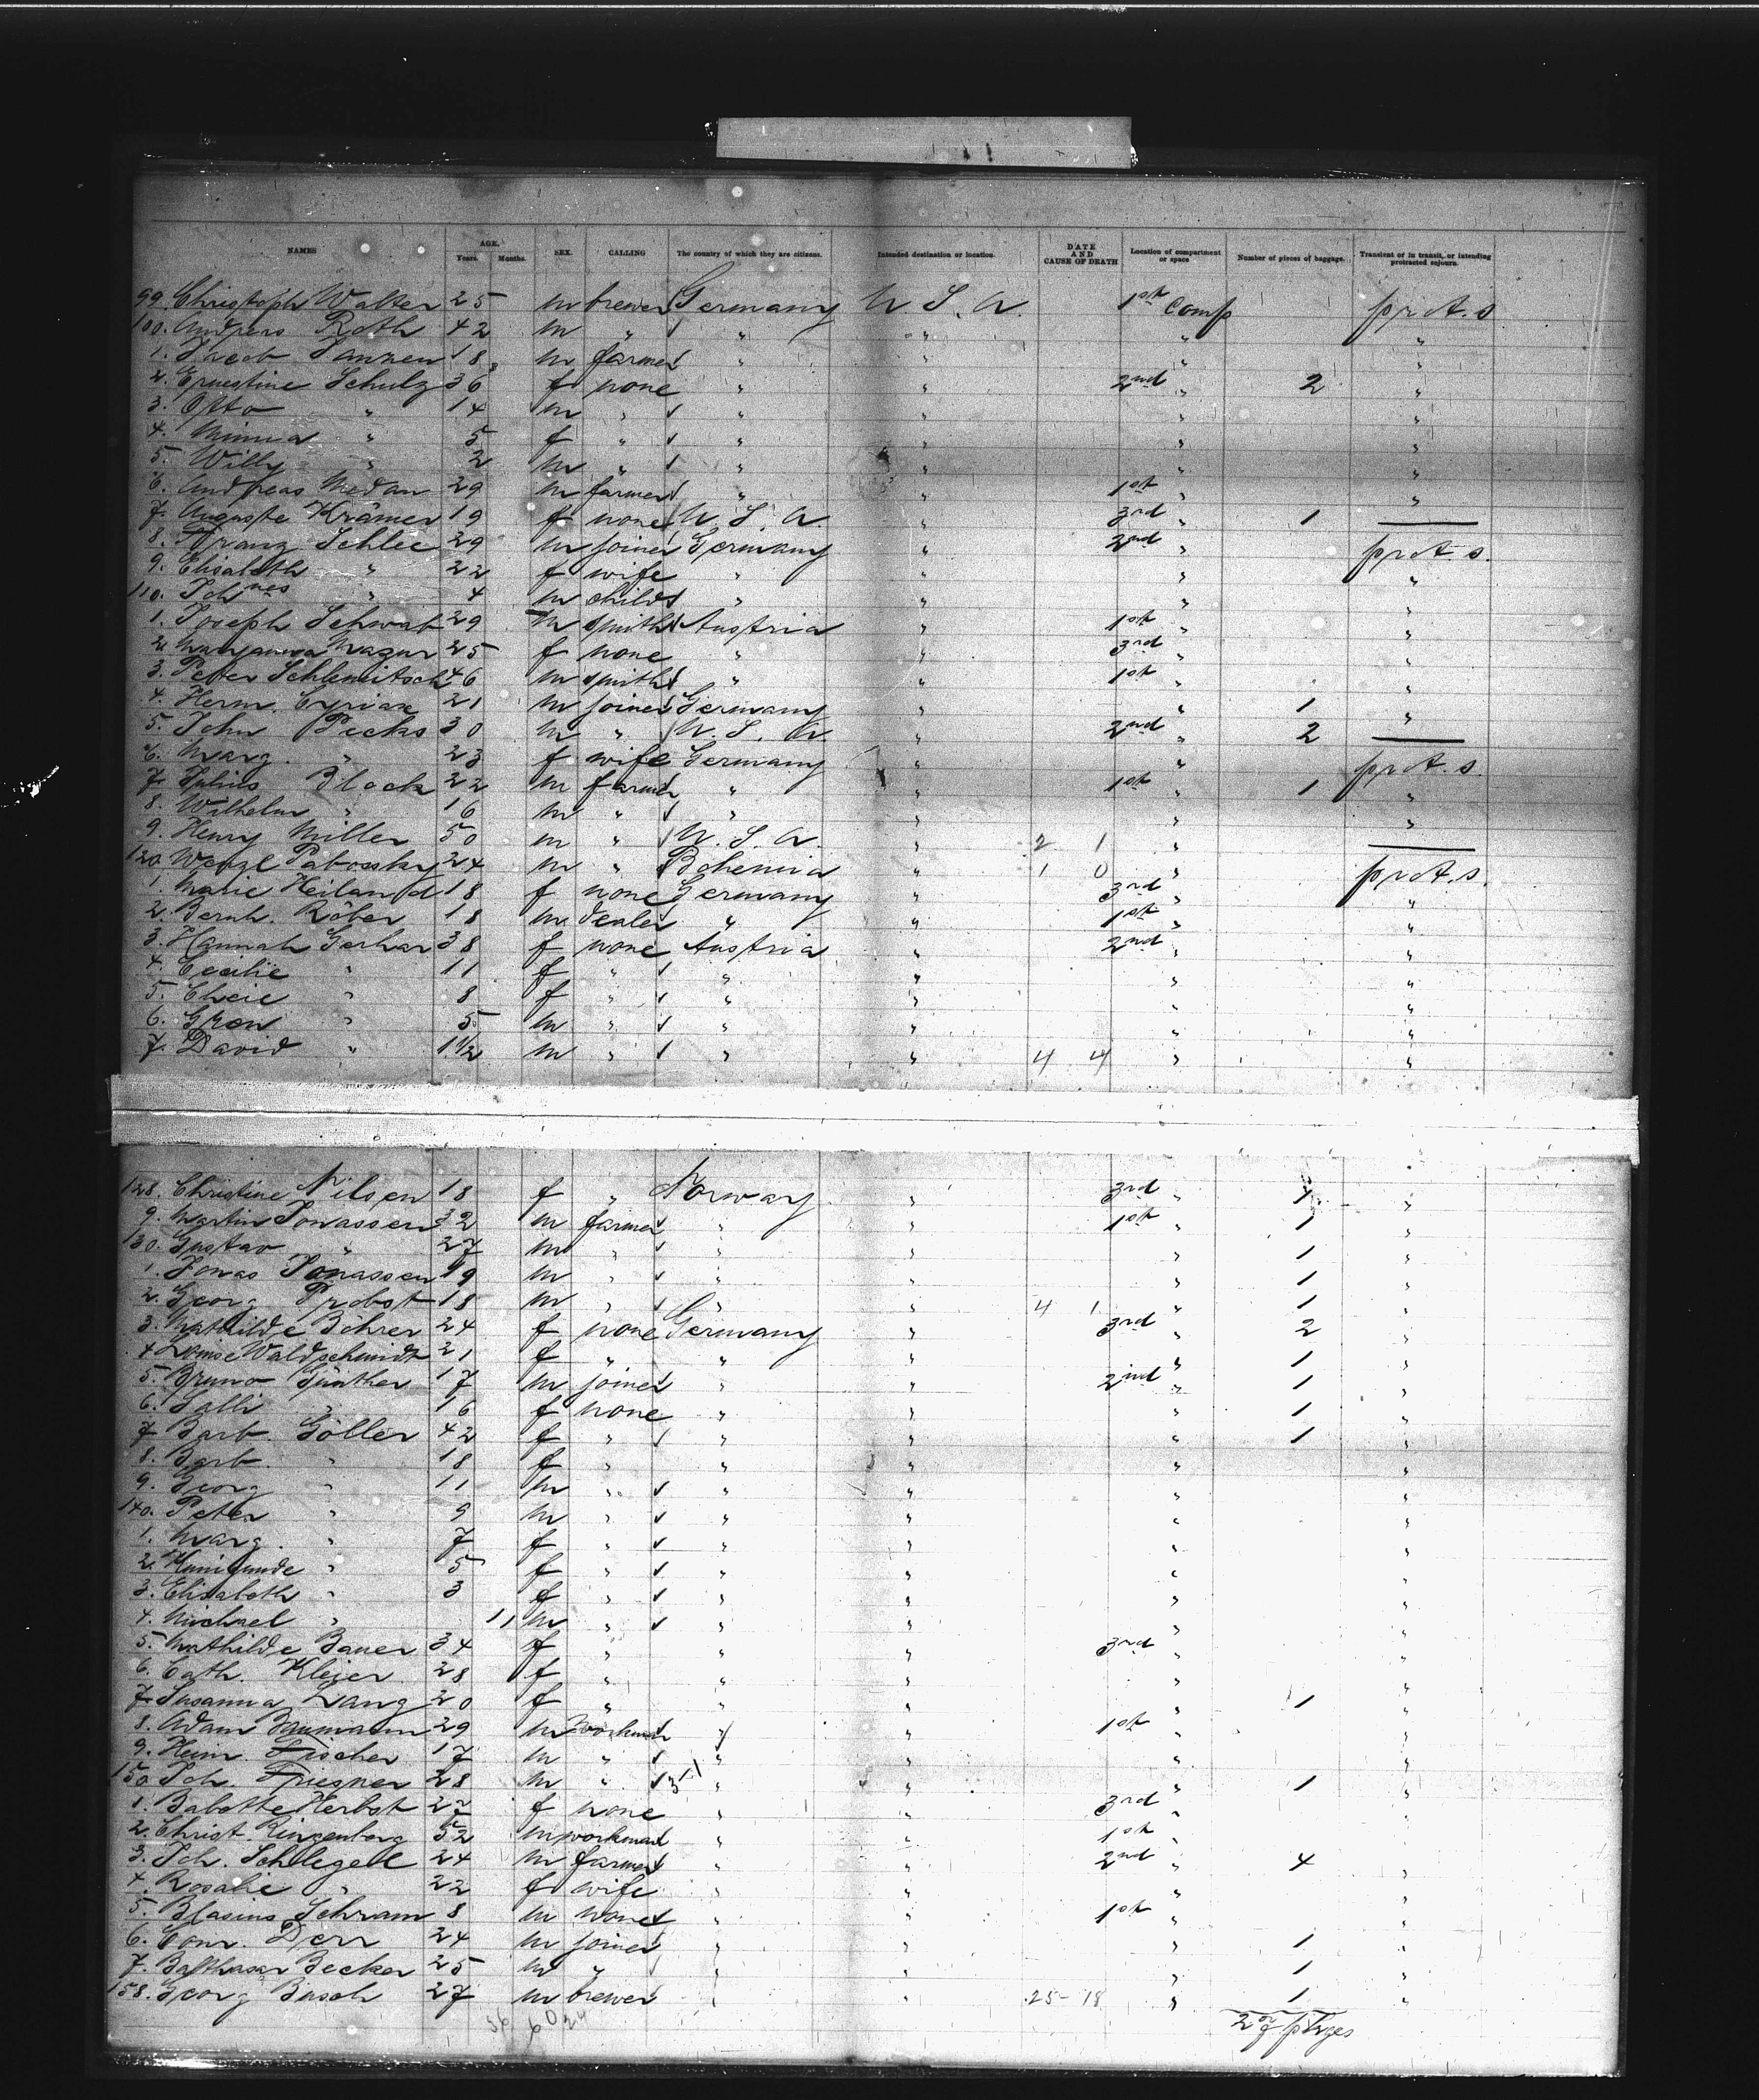 NAMES AGE. Years. Months. SEX. CALLING The country of which they are citizens. Intended destination or location. DATE AND CAUSE OF DEATH Location of compartment or space Number of pieces of baggage. Transient or in transit, or intending protracted sojourn.
99. Christoph Walter 25 m brewer Germany U. S. A. 1st Comp prot. s.
100. Andreas Roth 42 m " " " " "
1. Jacob Janzen 18 m farmer " " " "
2. Ernestine Schulz 36 f none " " 2nd " 2 "
3. Otto " 14 m " " " " "
4. Minna " 5 f " " " " "
5. Willy " 2 m " " " " "
6. Andreas Medan 29 m farmer " " 1st " "
7. Auguste Krämer 19 f none U. S. A. " 3rd " 1 —
8. Franz Schlee 29 m joiner Germany " 2nd " prot. s.
9. Elisabeth " 22 f wife " " " "
110. Johnes " 4 m child " " " "
1. Joseph Schwab 29 m smith Austria " 1st " "
2. Maryanna Mazur 25 f none " " 3rd " "
3. Peter Schlemitsch 46 m smith " " 1st " "
4. Herm. Cyriax 21 m joiner Germany " " 1 "
5. John Pecks 30 m " U. S. A. " 2nd " 2 —
6. Marg. " 23 f wife Germany " " prot. s.
7. Julius Block 22 m farmer " " 1st " 1 "
8. Wilhelm " 16 m " " " " "
9. Henry Miller 50 m " U. S. A. " 2 1 " —
120. Wenzl 24 m " Bohemia " 1 0 " prot. s.
1. Marie Heiland 18 f none Germany " 3rd " "
2. Bernh. Röber 18 m dealer " " 1st " "
3. Hannah Gerhar 38 f none Austria " 2nd " "
4. Cecilie " 11 f " " " " "
5. " 8 f " " " " "
6. " 5 m " " " " "
7. David " 1 1/2 m " " " 4 4 " "
128. Christine Nilsen 18 f " Norway " 3rd " 1 "
9. Martin Jonassen 32 m farmer " " 1st " 1 "
130. Gustav " 27 m " " " " 1 "
1. Jonas Jonassen 19 m " " " " 1 "
2. Georg Probst 18 m " " " 4 1 " 1 "
3. Mathilde Böhrer 24 f none Germany " 3rd " 2 "
4. Louise Waldschmidt 21 f " " " " 1 "
5. Bruno Günther 17 m joiner " " 2nd " 1 "
6. Salli " 16 f none " " " 1 "
7. Barb. Göller 42 f " " " " 1 "
8. Barb. " 18 f " " " " "
9. Georg " 11 m " " " " "
140. Peter " 9 m " " " " "
1. Marg. " 7 f " " " " "
2. Kunigunde " 5 f " " " " "
3. Elisabeth " 3 f " " " " "
4. Michael " 11 m " " " " "
5. Mathilde Bauer 34 f " " " 3rd " "
6. Cath. Kleier 28 f " " " " "
7. Susanna Lang 20 f " " " " 1 "
8. Adam Baumann 29 m workman " " 1st " "
9. Heinr. Fischer 17 m " " " " "
150. Joh. Friesner 28 m " " " " 1 "
1. Babette Herbst 27 f none " " 3rd " "
2. Christ. Ringenberg 52 m workman " " 1st " "
3. Joh. Schlegel 24 m farmer " " 2nd " 4 "
4. Rosalie " 22 f wife " " " "
5. Blasius Schram 8 m none " " 1st " "
6. Conr. Derr 24 m joiner " " " 1 "
7. Balthasar Becker 25 m " " " " 1 "
158. Georg Busch 27 m brewer " " 25-18 " 1 "